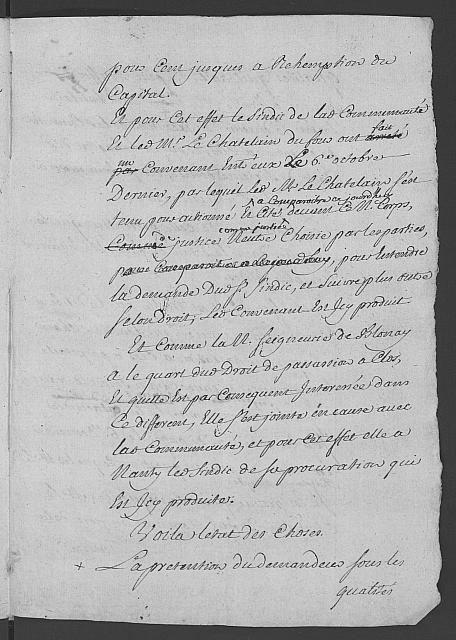 pour Cent jusques a Rehemption du
Capital.
Et pour Cet effet le Sindic de lad Communauté
Et led Mr. Le Chatelain du four ont fait
un Convenant Ent'eux Le 6e octobre
Dernier, par lequel led Mr Le Chatelain s'est
tenu pour actionné, a Comparoitre aujourdhuy
Et Cité devant Ce N. Corps,
comme justice
de justice Neutre Choisie par les parties,
pour entendre
la demande Dud Sr. Sindic, et suivre plus outre
selon Droit, Led Convenant Est Jcy produit
Et Comme la N. seigneurie de Blonay
A le quart dud Droit de passation a Clos,
Et quelle Est par Consequent Interessée dans
Ce different, Elle s'est jointe en cause avec
lad Communauté, et pour Cet effet elle a
Nanty led Sindic de sa procuration qui
Est Jcy produite.
Voila letat des Choses.
+ La pretention du demandeur sous les
quatres